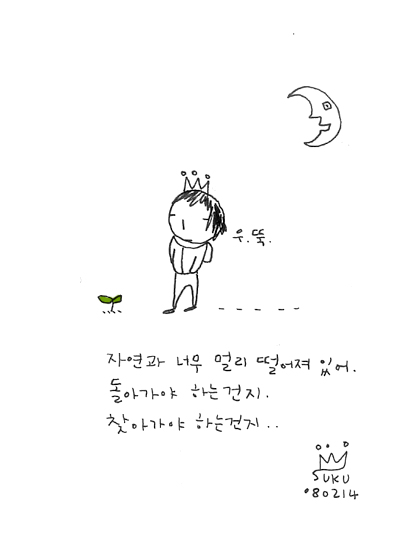 우.뚝.
자연과 너무 멀리 떨어져 있어.
돌아가야 하는건지.
찾아가야 하는건지..
SUKU
'080214